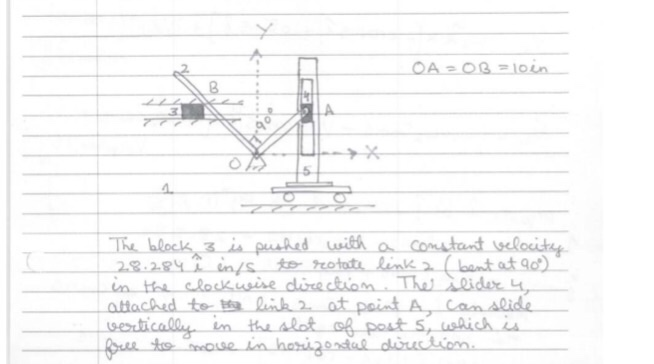 Y
2
B
OA = OB = 10in
3
4
A
90°
O
X
5
1
The block 3 is pushed with a constant velocity
28.284 î in/s to rotate link 2 (bent at 90°)
in the clockwise direction. The slider 4,
attached to link 2 at point A, can slide
vertically in the slot of post 5, which is
free to move in horizondal direction.